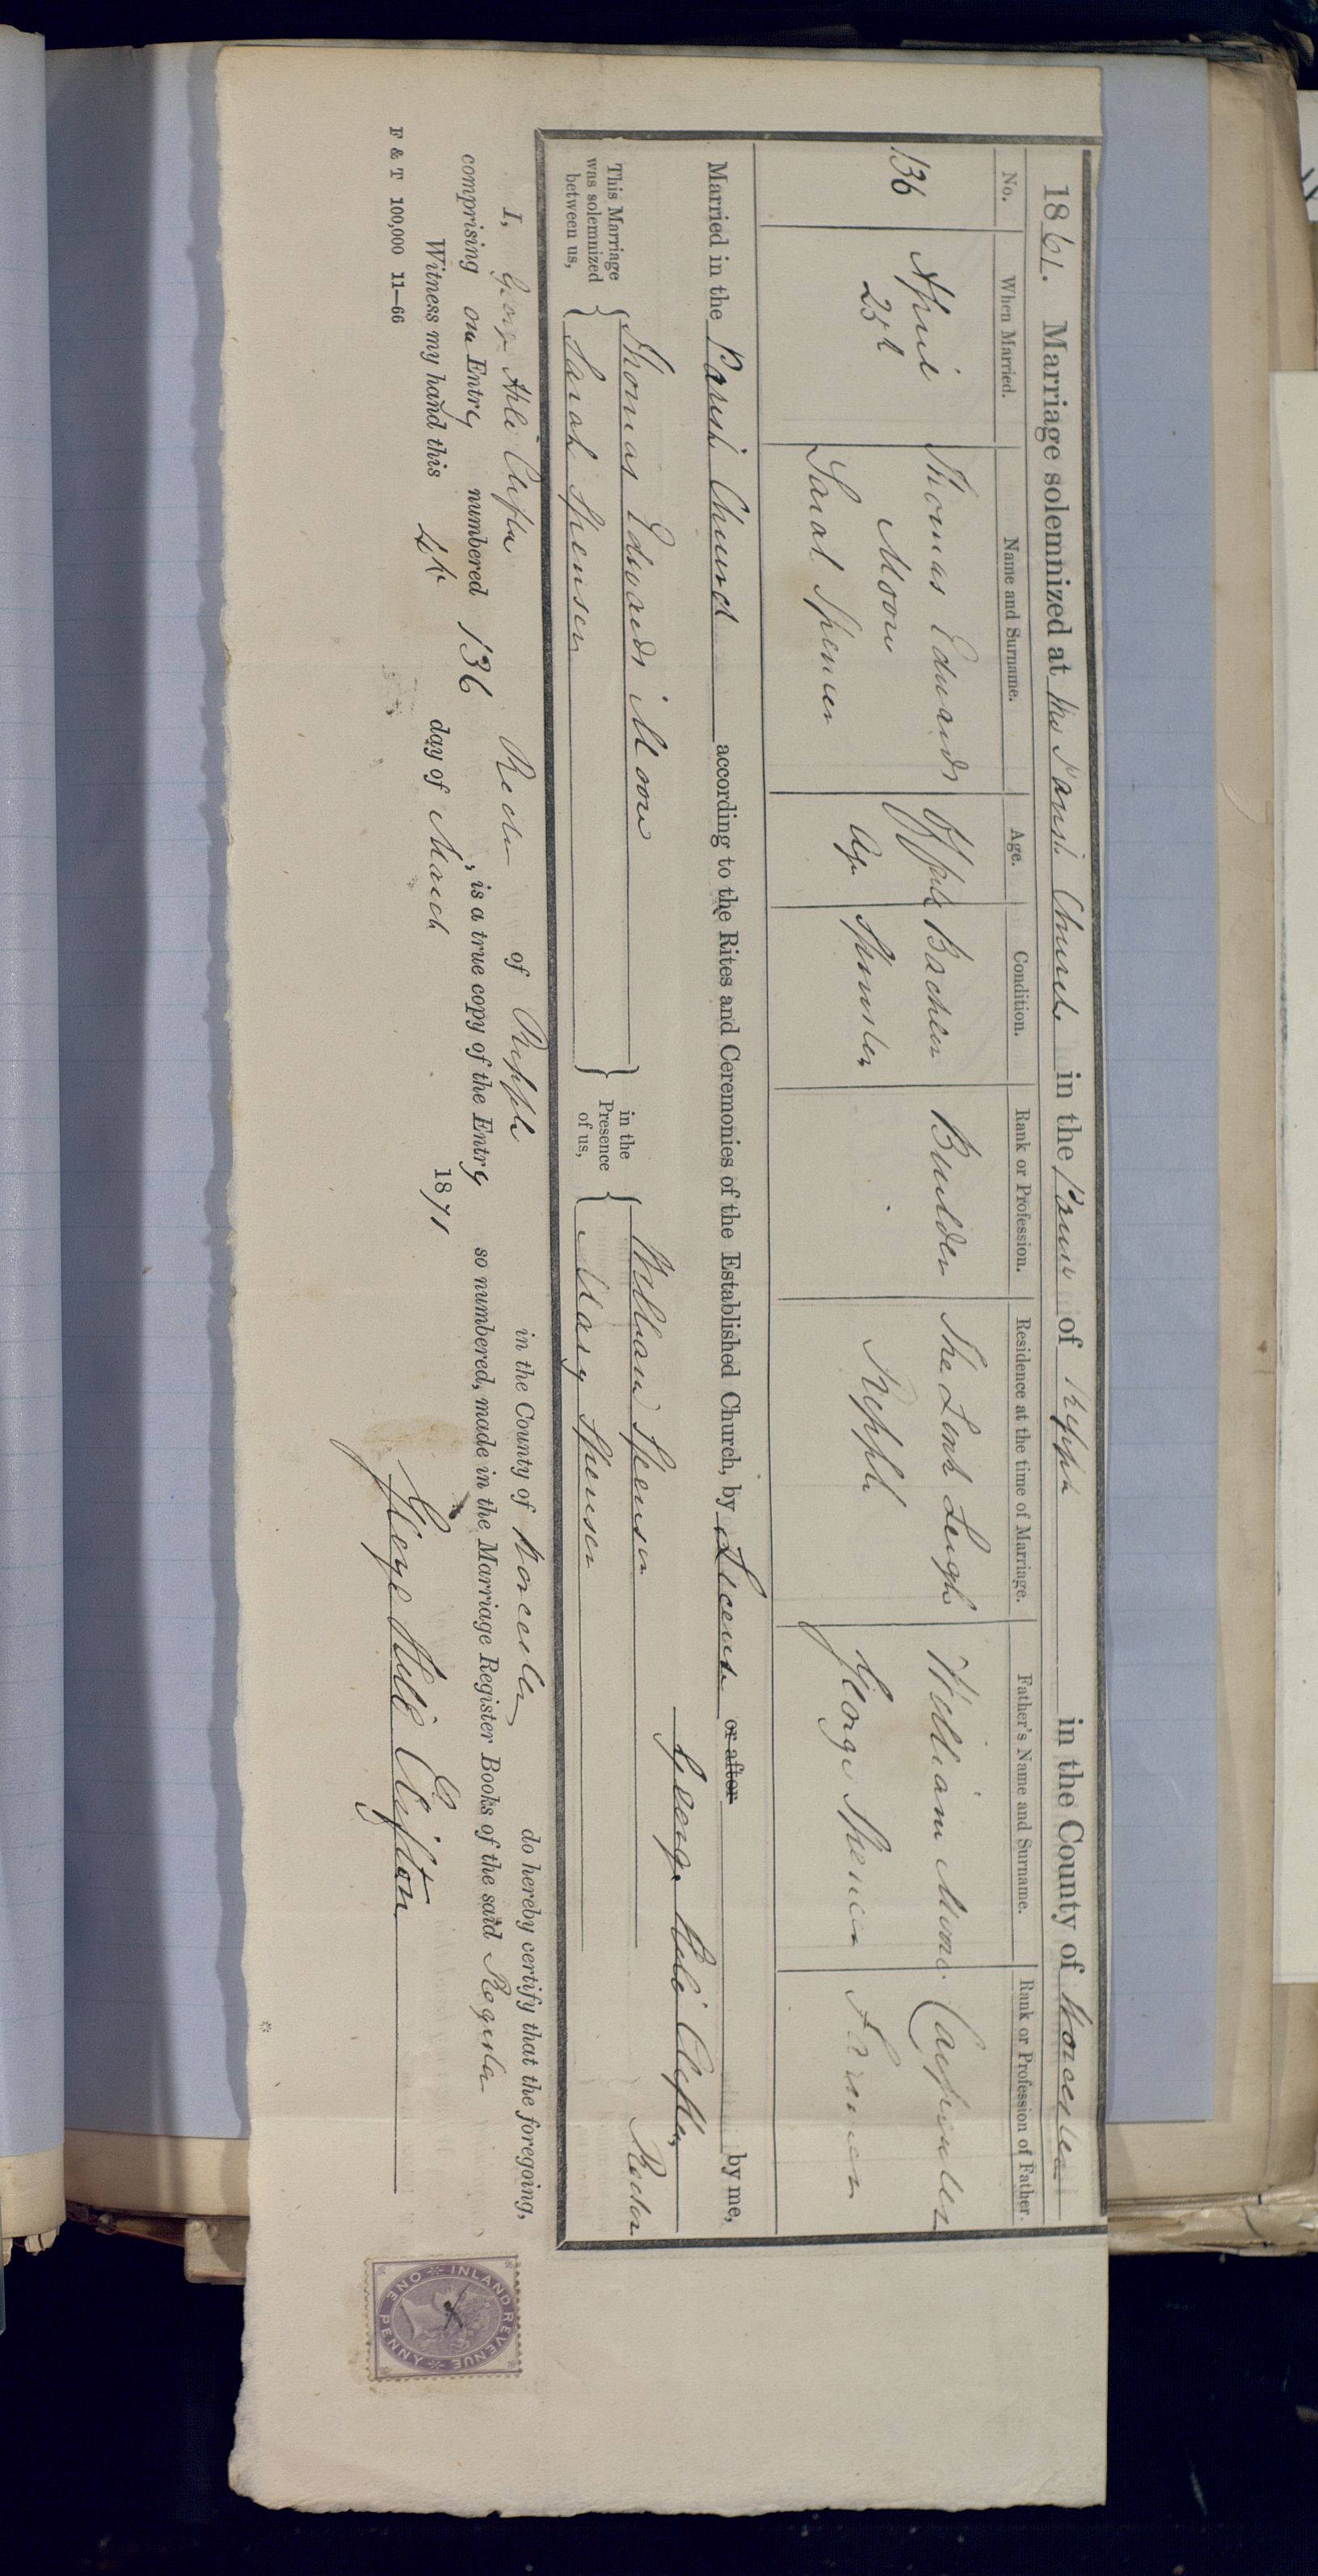 1861. Marriage solemnized at the Parish Church in the Parish of Ripple in the County of Worcester
No. When Married. Name and Surname. Age. Condition. Rank or Profession. Residence at the time of Marriage. Father's Name and Surname. Rank or Profession of Father.
136 April 25th Thomas Edwards Moore Of full Age Bachelor Builder The Link Leigh William Moore Carpenter
Sarah Spencer Spinster Ripple George Spencer Farmer
Married in the Parish Church according to the Rites and Ceremonies of the Established Church, by Licence or after by me,
George Hill Clifton Rector
This Marriage was solemnized between us, Thomas Edwards Moore in the Presence of us, William Spencer
Sarah Spencer Mary Spencer
I, George Hill Clifton Rector of Ripple in the County of Worcester do hereby certify that the foregoing,
comprising one Entry numbered 136, is a true copy of the Entry so numbered, made in the Marriage Register Books of the said Register
Witness my hand this 4th day of March 1871
George Hill Clifton
F & T 100,000 11—66
INLAND REVENUE
ONE PENNY